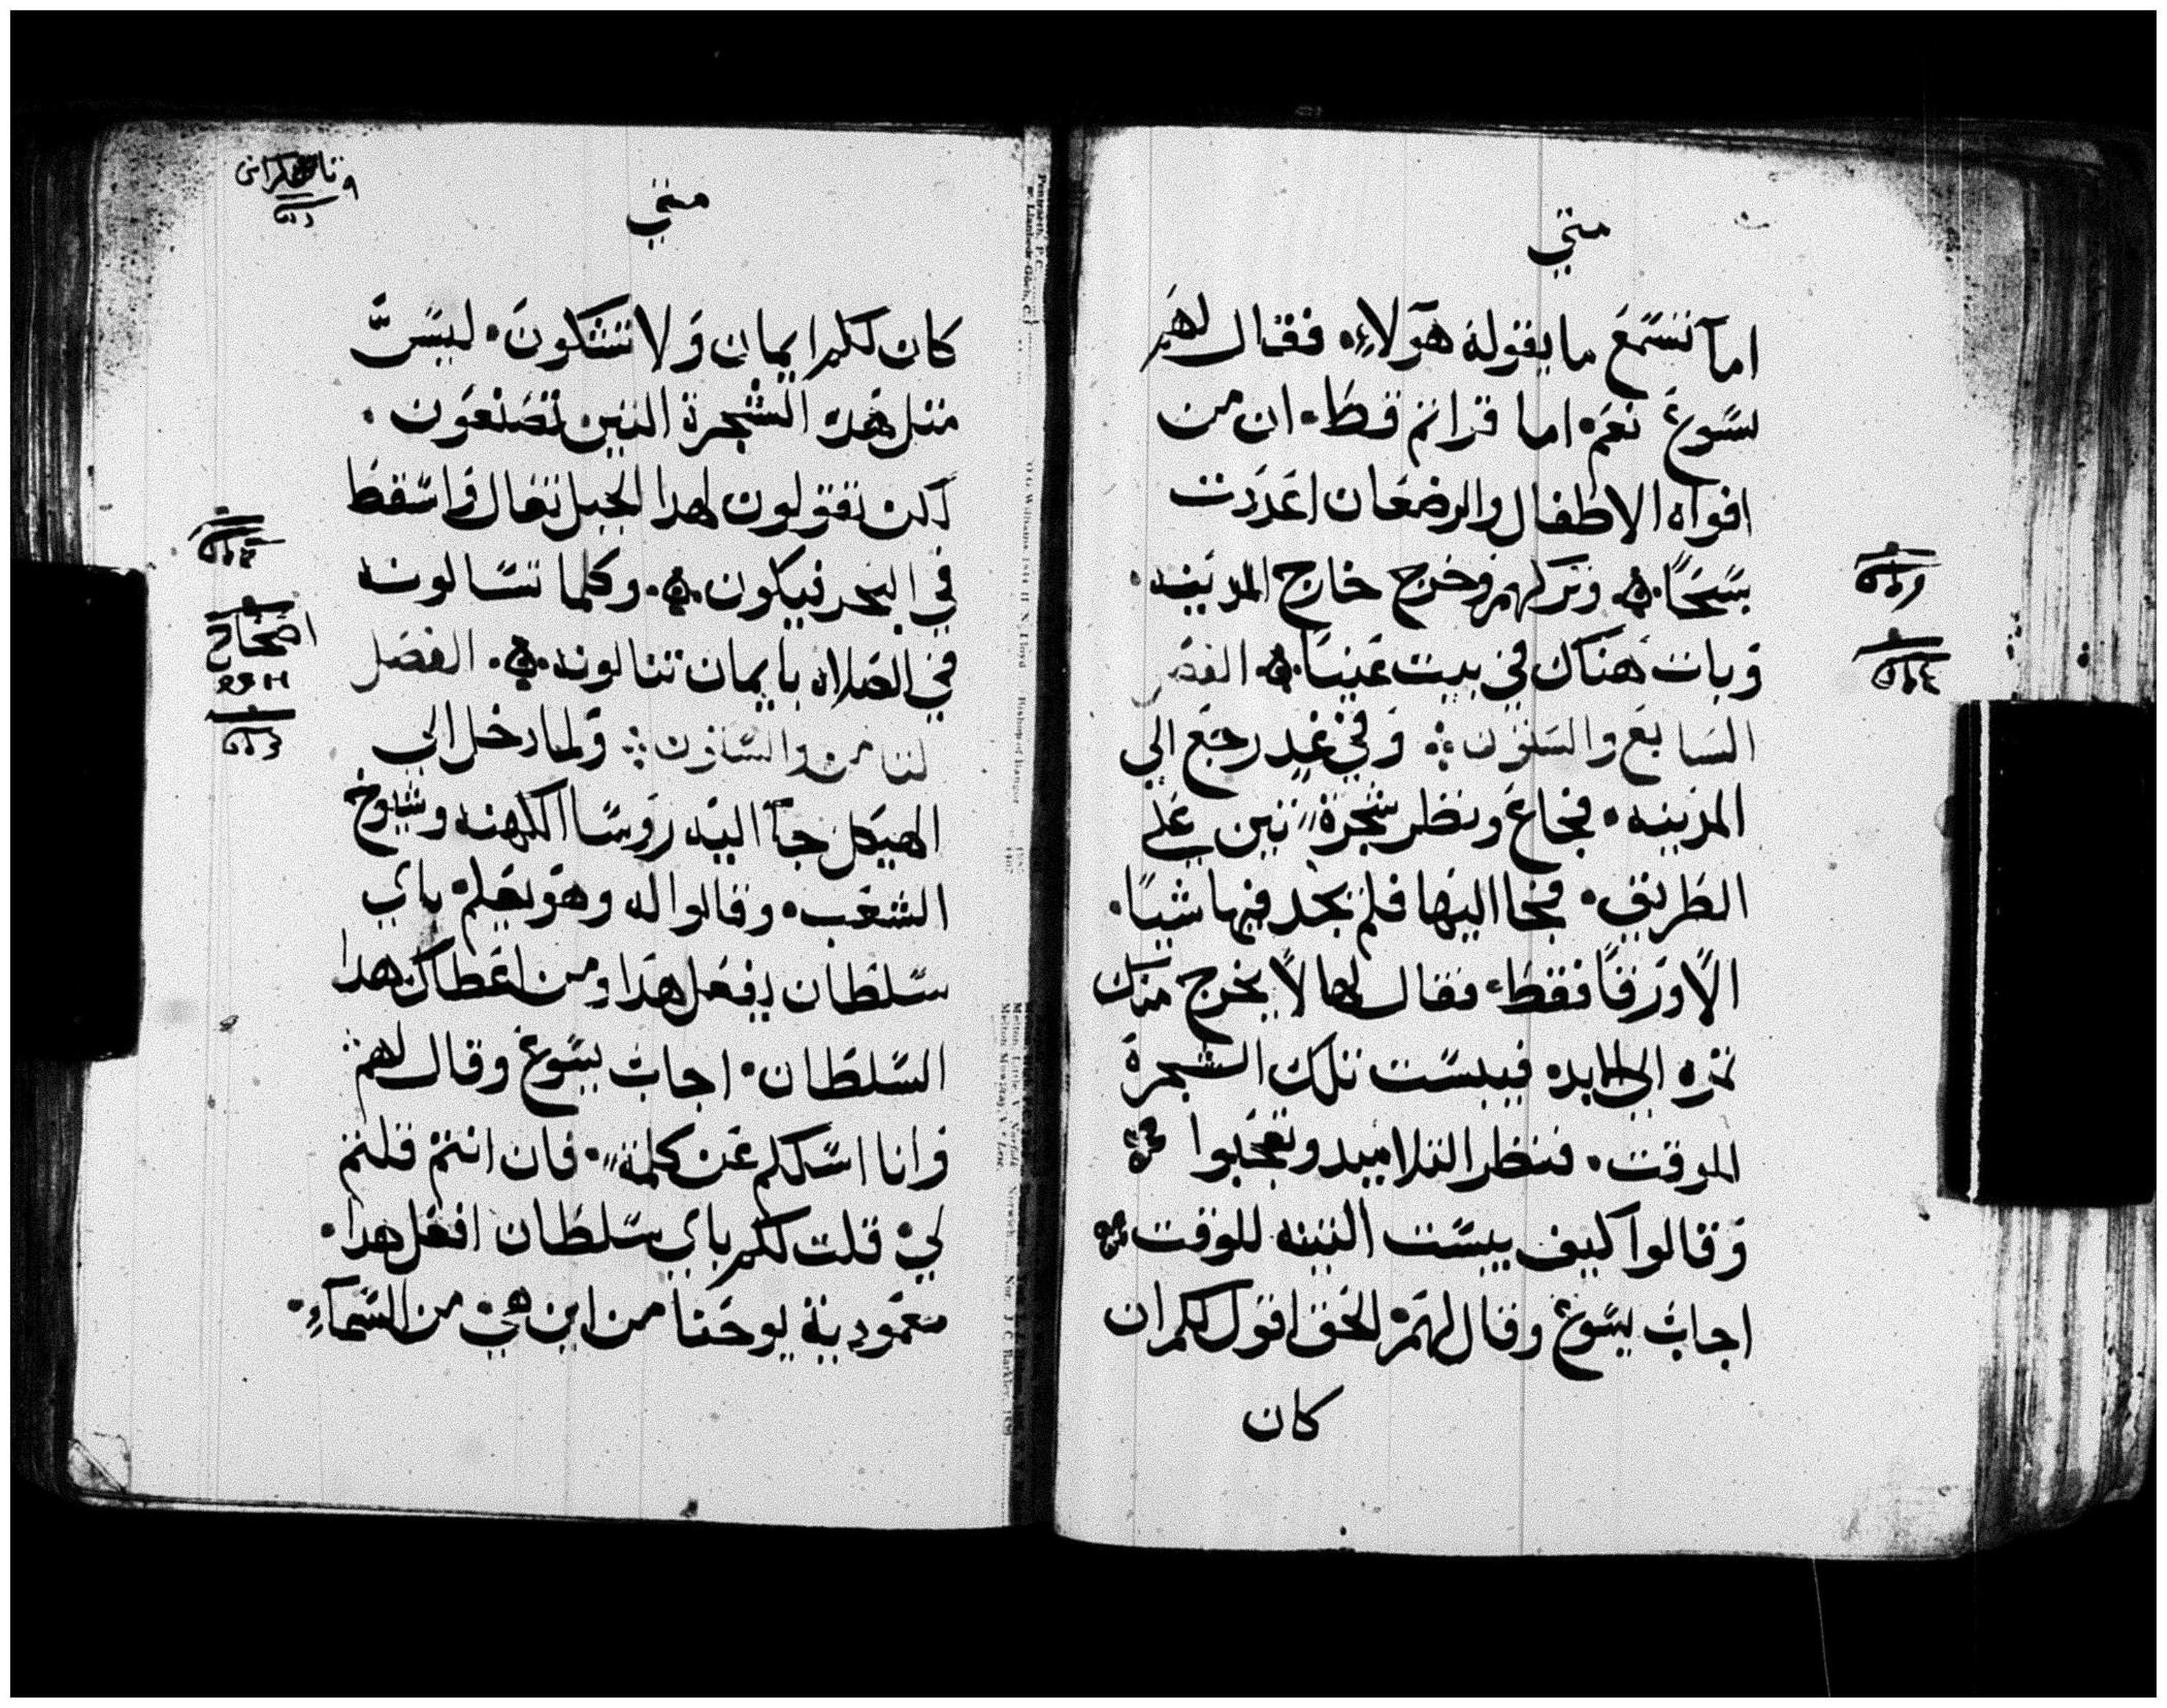 متي
اما تسمع ما يقوله هولاء فقال لهم
يسوع نعم اما قراتم قط ان من
افواه الاطفال والرضعان اعددت
سبحًا وتركهم وخرج خارج المدينه
وبات هناك في بيت عنيا الفصل
السابع والستون وفي غدٍ رجع الي
المدينه فجاع ونظر شجرة تين علي
الطريق فجا اليها فلم يجد فيها شيًا
الا ورقًا فقط فقال لها لا يخرج منك
ثمره الي الابد فيبست تلك الشجرة
للوقت فنظر التلاميد وتعجبوا
وقالوا كيف يبست التينه للوقت
اجاب يسوع وقال لهم الحق اقول لكم ان
كان
متي
كان لكم ايمان ولا تشكون ليس
مثل هده الشجرة التين تصنعون
لكن تقولون لهدا الجبل تعال واسقط
في البحر فيكون وكلما تسالونه
في الصلاه بايمان تنالونه الفصل
الثامن والستون ولما دخل الي
الهيكل جا اليه روسا الكهنه وشيوخ
الشعب وقالوا له وهو يعلم باي
سلطان يفعل هدا ومن اعطاك هدا
السلطان اجاب يسوع وقال لهم
وانا اسلكم عن كلمة فان انتم قلتم
لي قلت لكم باي سلطان افعل هدا
معمودية يوحنا من اين هي من السماء
اصحاح